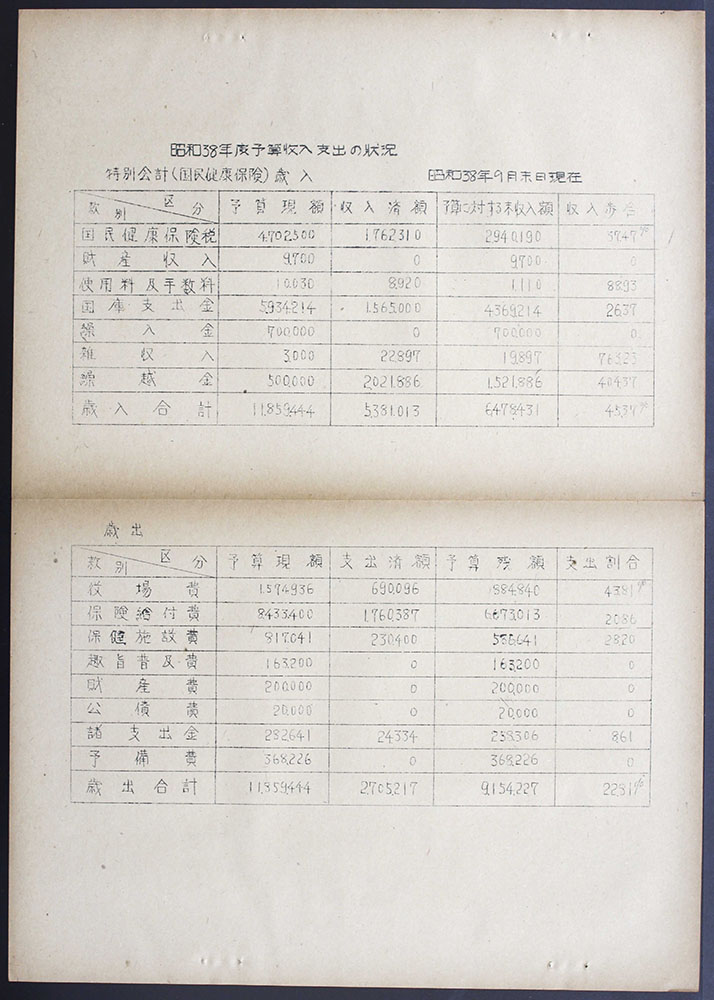 昭和38年度予算収入支出の状況
特別会計(国民健康保険)歳入 昭和38年9月末日現在
款別 区分 予算現額 収入済額 予算に対する未収入額 収入歩合
国民健康保険税 4,702,500 1,762,310 2,940,190 37.47%
財産収入 9,700 0 9,700 0
使用料及手数料 10,030 8,920 1,110 88.93
国庫支出金 5,934,214 1,565,000 4,369,214 26.37
繰入金 700,000 0 700,000 0
雑収入 3,000 22,897 19,897 763.23
繰越金 500,000 2,021,886 1,521,886 404.37
歳入合計 11,859,444 5,381,013 6,478,431 45.37%
歳出
款別 区分 予算現額 支出済額 予算残額 支出割合
役場費 1,574,936 690,096 884,840 43.81%
保険給付費 8,433,400 1,760,387 6,673,013 20.86
保健施設費 817,041 230,400 586,641 28.20
趣旨普及費 163,200 0 163,200 0
財産費 200,000 0 200,000 0
公債費 20,000 0 20,000 0
諸支出金 282,641 24,334 258,306 8.61
予備費 368,226 0 368,226 0
歳出合計 11,859,444 2,705,217 9,154,227 22.81%